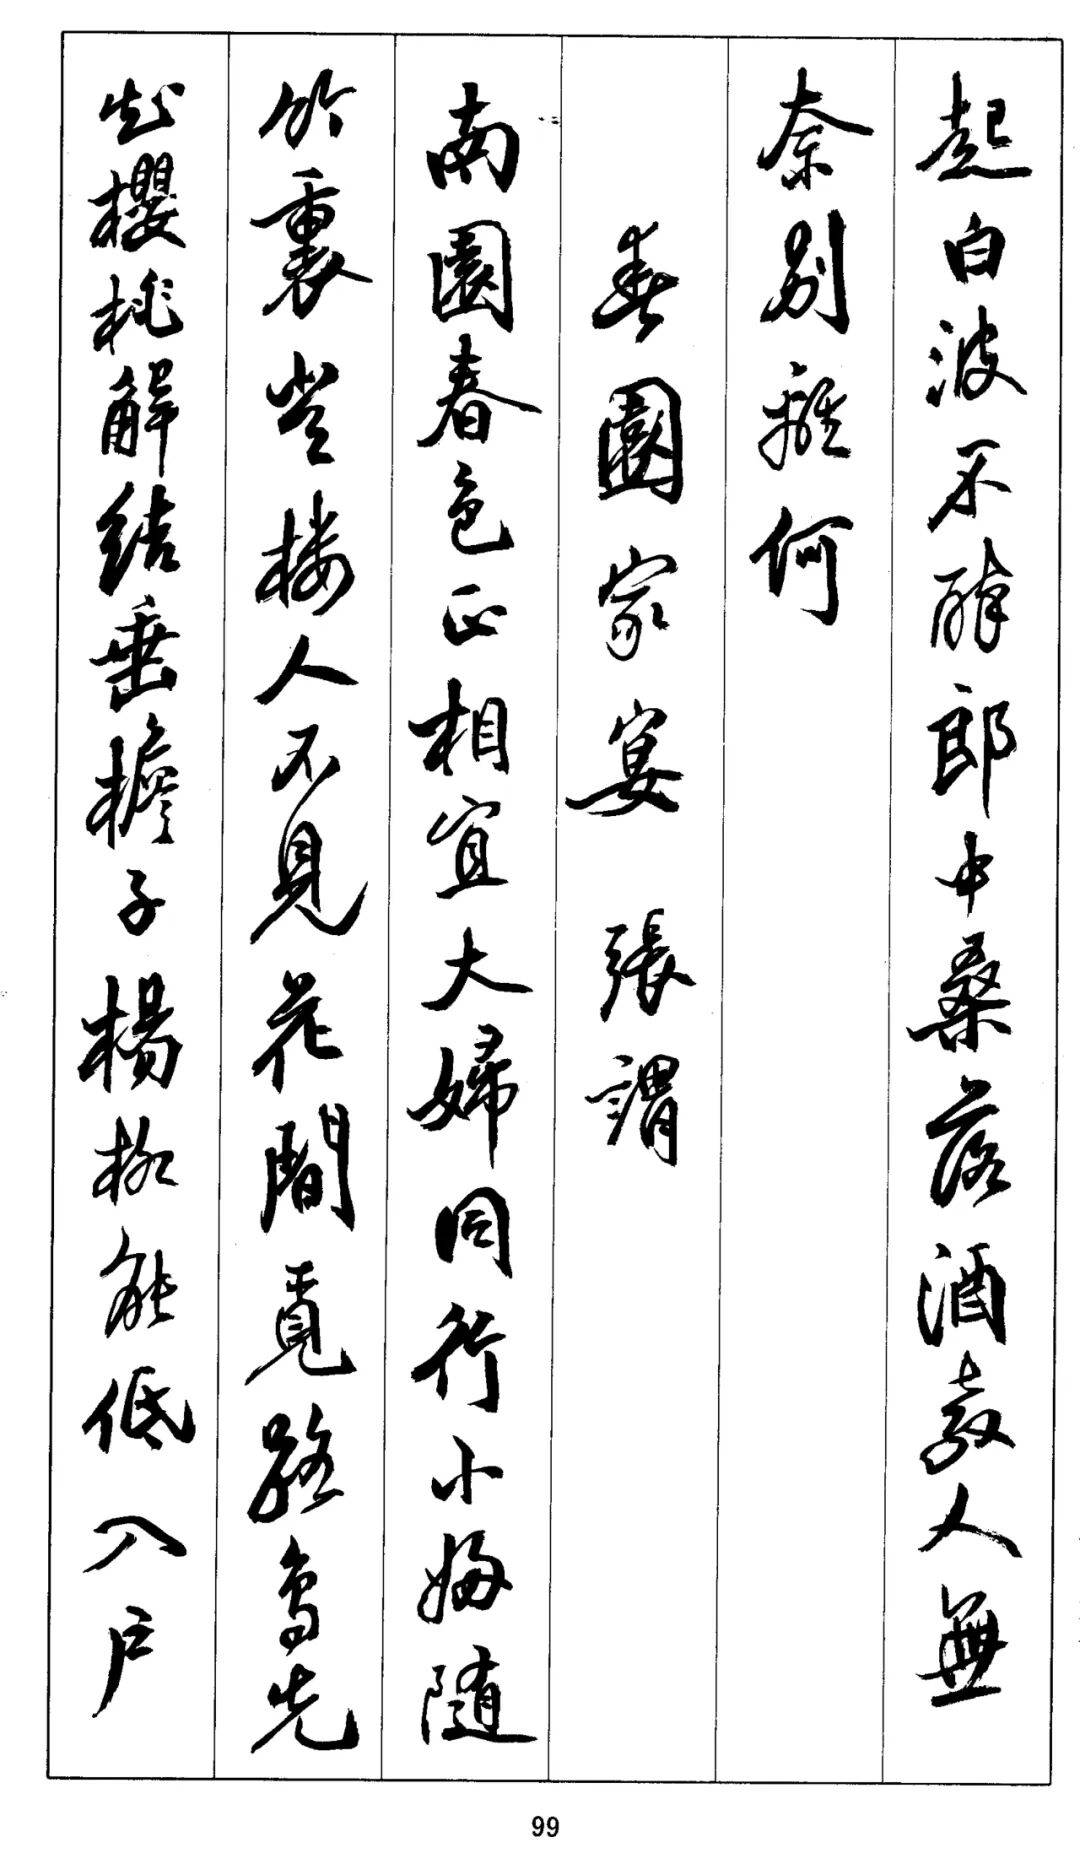 起白波不醉郎中桑落酒教人無
奈別離何
春園家宴 張謂
南園春色正相宜大婦同行小婦随
竹裏登楼人不見花間覓路鳥先
知櫻桃解結垂檐子楊柳能低入戶
99